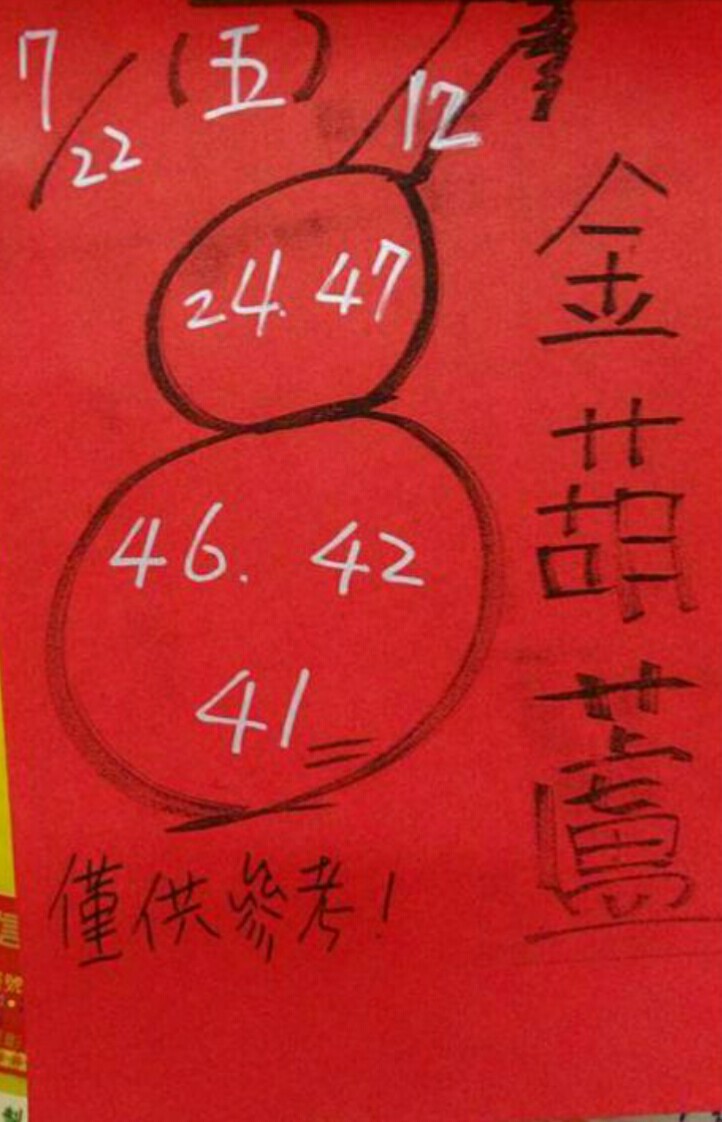 7/22 (五)
12
24. 47
46. 42
41
金葫蘆
僅供參考!
號